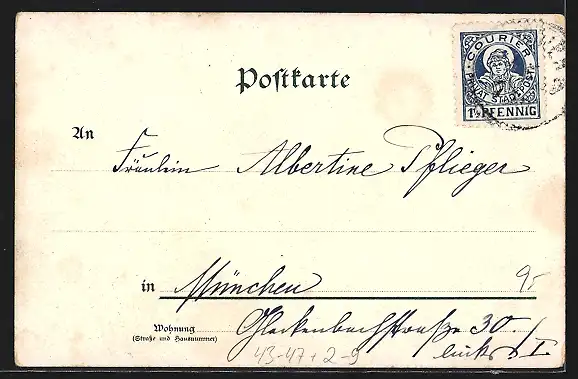 Postkarte
COURIER
PRIVAT STADTPOST
1½ PFENNIG
An Fräulein Albertine Pflieger
in München
95
Wohnung
(Straße und Hausnummer)
30./I
links
43-47+2-9